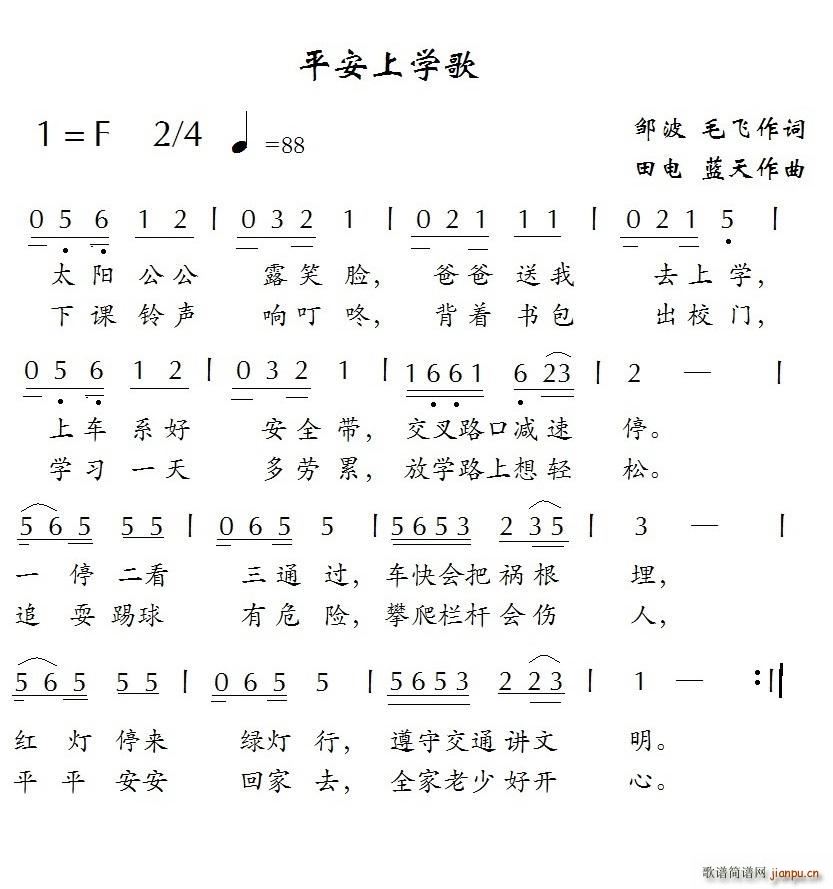 平安上学歌
1=F 2/4 ♩=88 邹波 毛飞作词
田电 蓝天作曲
0 5 6 1 2 | 0 3 2 1 | 0 2 1 1 1 | 0 2 1 5 |
太阳公公 露笑脸， 爸爸送我 去上学，
下课铃声 响叮咚， 背着书包 出校门，
0 5 6 1 2 | 0 3 2 1 | 1 6 6 1 6 2 3 | 2 — |
上车系好 安全带， 交叉路口减速 停。
学习一天 多劳累， 放学路上想轻 松。
5 6 5 5 5 | 0 6 5 5 | 5 6 5 3 2 3 5 | 3 — |
一停二看 三通过， 车快会把祸根 埋，
追耍踢球 有危险， 攀爬栏杆会伤 人，
5 6 5 5 5 | 0 6 5 5 | 5 6 5 3 2 2 3 | 1 — :||
红灯停来 绿灯行， 遵守交通讲文 明。
平平安安 回家去， 全家老少好开 心。
歌谱简谱网
jianpu.cn